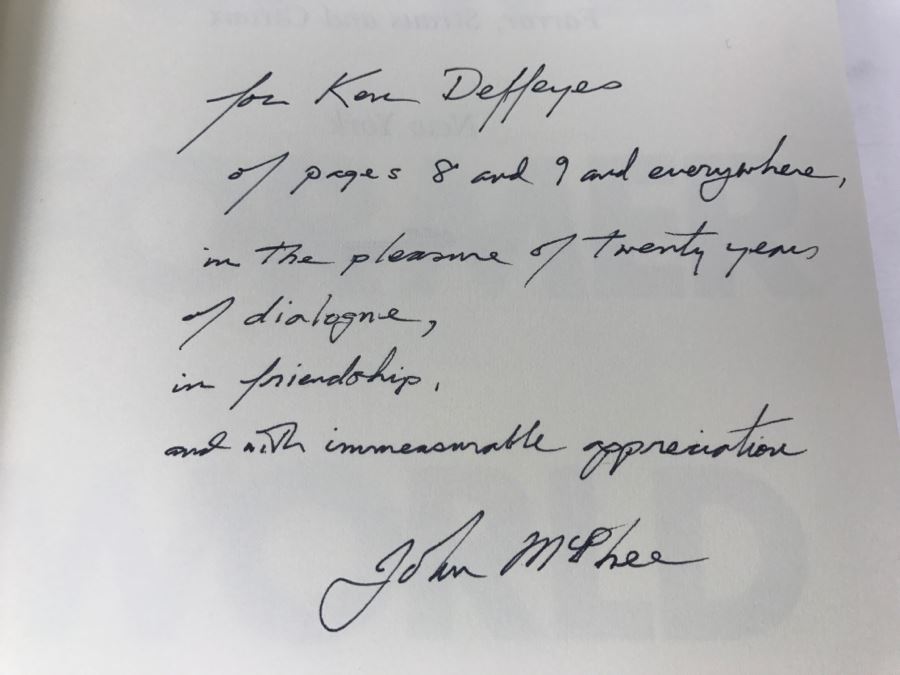 Farrar, Straus and Giroux
for Ken Deffeyes
New York
of pages 8 and 9 and everywhere,
in the pleasure of twenty years
of dialogue,
in friendship,
and with immeasurable appreciation
John McPhee